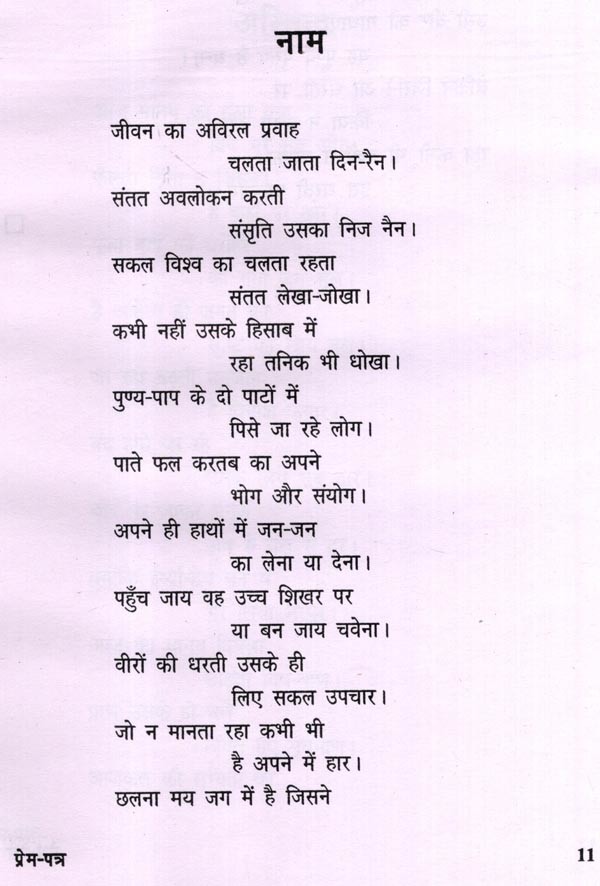 नाम
जीवन का अविरल प्रवाह
चलता जाता दिन-रैन।
संतत अवलोकन करती
संसृति उसका निज नैन।
सकल विश्व का चलता रहता
संतत लेखा-जोखा।
कभी नहीं उसके हिसाब में
रहा तनिक भी धोखा।
पुण्य-पाप के दो पाटों में
पिसे जा रहे लोग।
पाते फल करतब का अपने
भोग और संयोग।
अपने ही हाथों में जन-जन
का लेना या देना।
पहुँच जाय वह उच्च शिखर पर
या बन जाय चवेना।
वीरों की धरती उसके ही
लिए सकल उपचार।
जो न मानता रहा कभी भी
है अपने में हार।
छलना मय जग में है जिसने
प्रेम-पत्र
11